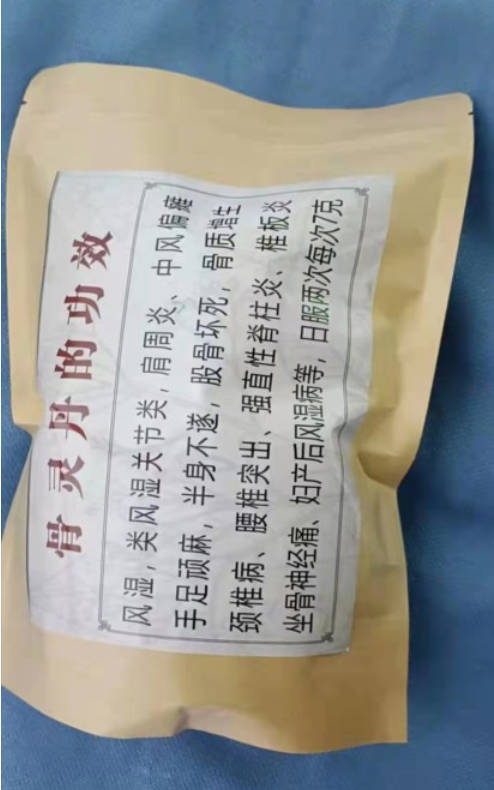 骨灵丹的功效
风湿，类风湿关节类，肩周炎、中风偏瘫
手足顽麻，半身不遂，股骨坏死，骨质增生
颈椎病、腰椎突出、强直性脊柱炎、椎板炎
坐骨神经痛、妇产后风湿病等，日服两次每次7克